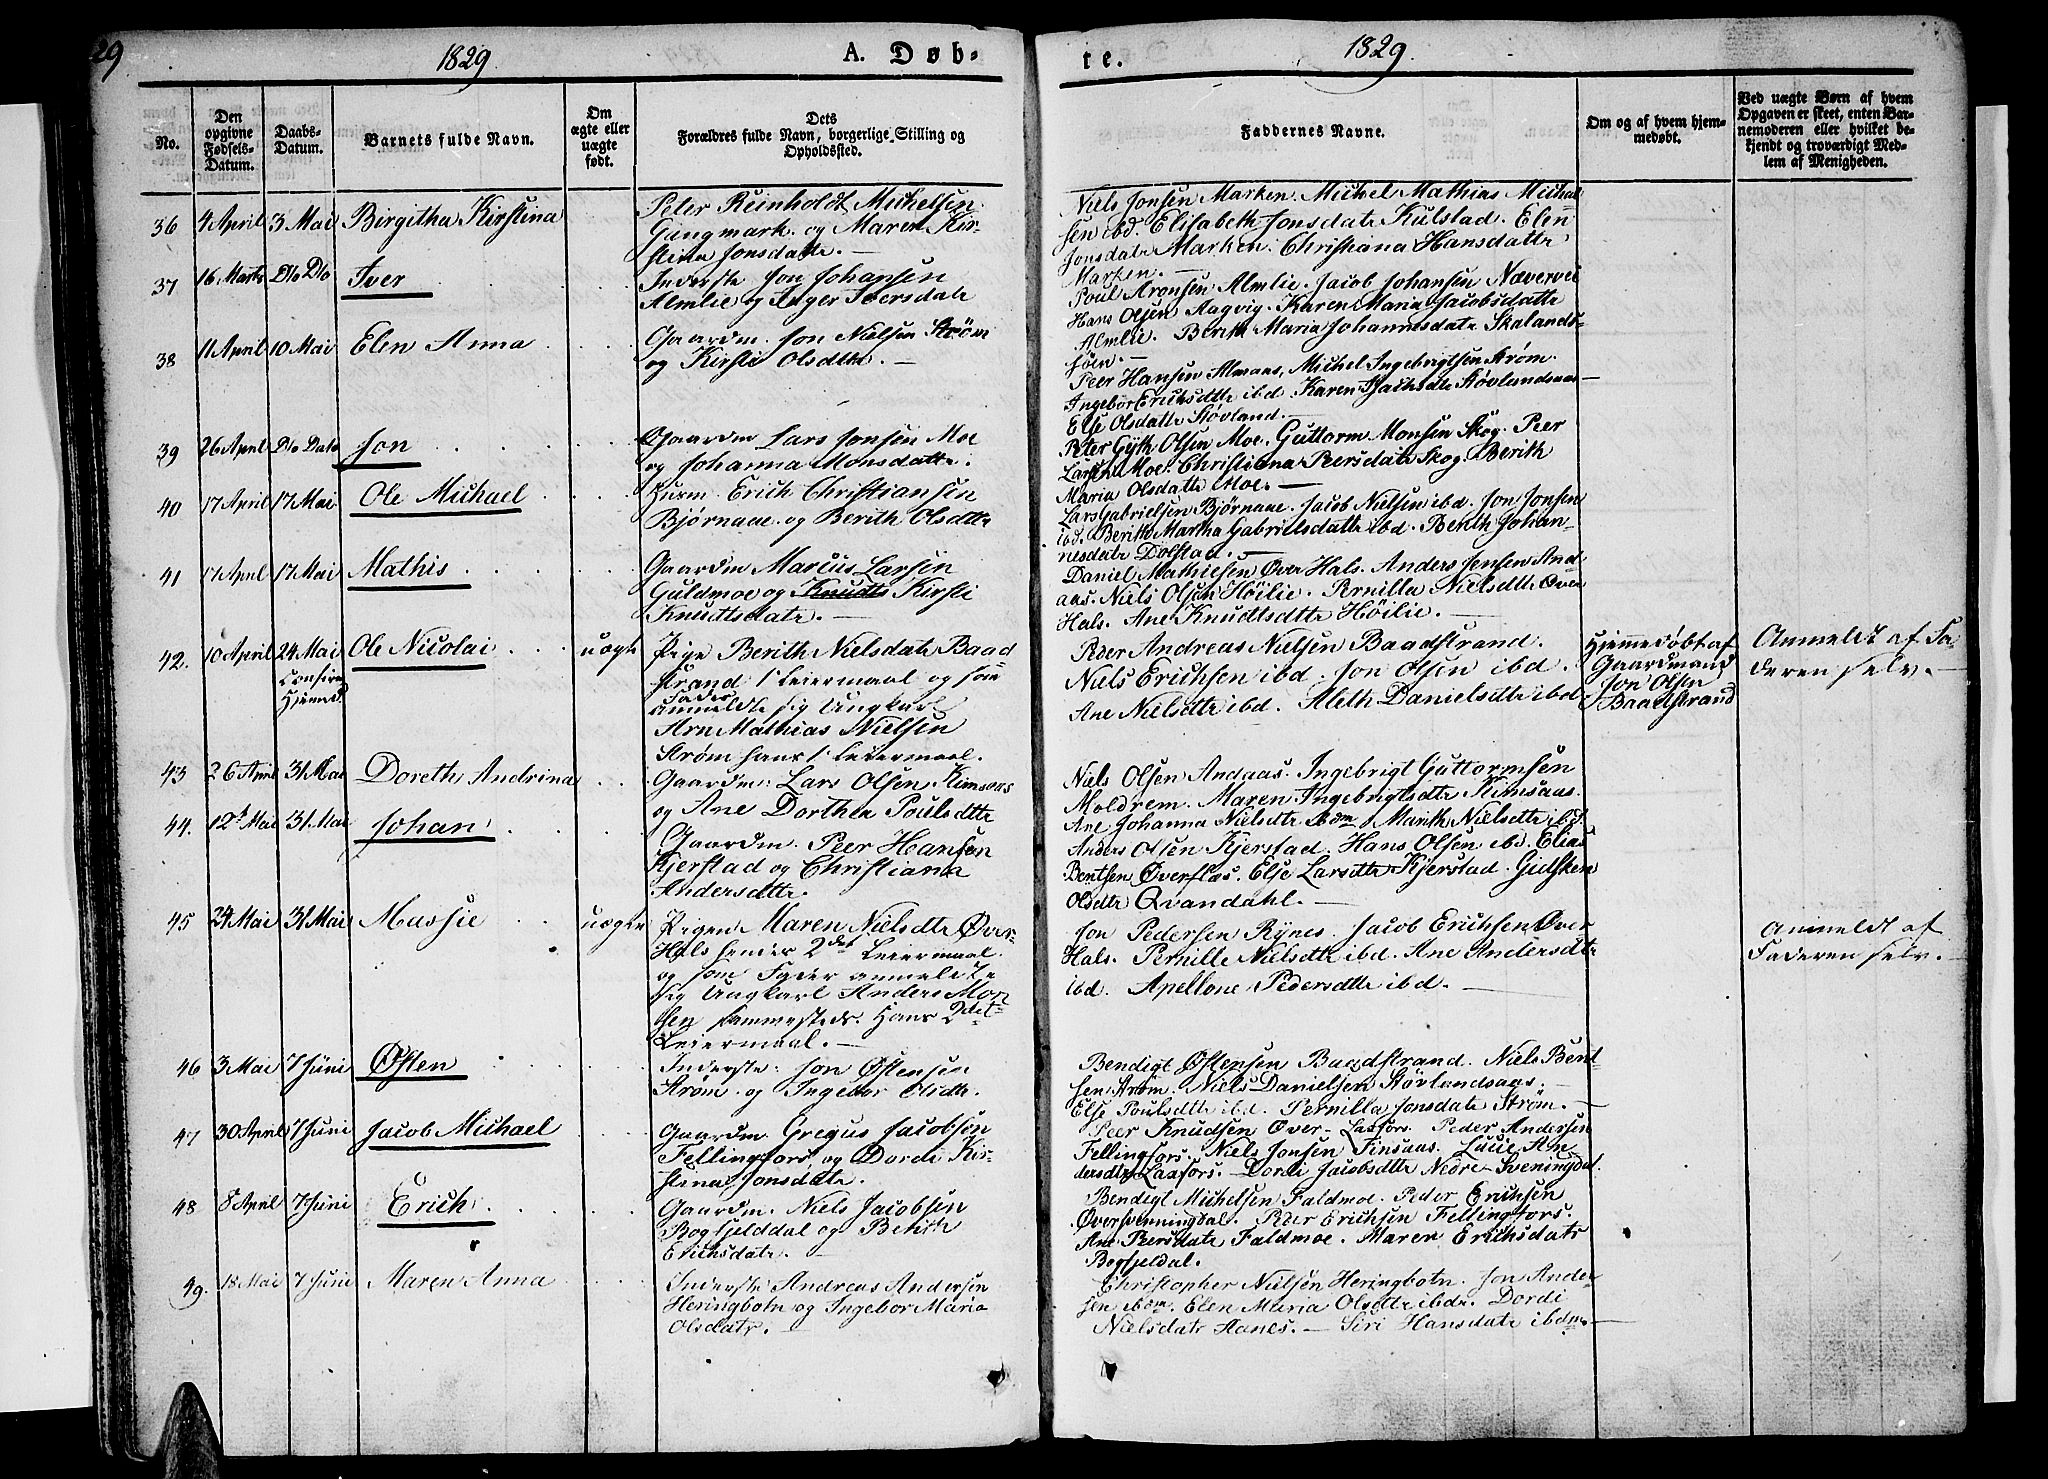 29
1829
A. Døb-
te.
1829.
No.
Den opgivne Fødsels-Datum.
Daabs-Datum.
Barnets fulde Navn.
Om ægte eller uægte født.
Dets Forældres fulde Navn, borgerlige Stilling og Opholdssted.
Faddernes Navne.
Om og af hvem hjemmedøbt.
Ved uægte Børn af hvem Opgaven er skeet, enten Barnemoderen eller hvilket bekjendt og troværdigt Medlem af Menigheden.
36 4 April 3 Mai Birgitha Kirstina
Peter Reinholdt Michelsen
Gungmark og Maren Kir-
stina Jonsdatr.
Niels Jonsen Marken. Michel Mathias Michel
sen ibd. Elisabeth Jonsdatr Kulstad. Elen
Jonsdatr Marken. Christiana Hansdattr
Marken.
37 16 Marts Dto Dto Iver
Inderste Jon Johansen
Almlie og Inger Iversdatr
Poul Aronsen Almlie. Jacob Johansen Næverve
Hans Olsen Aagvig. Karen Maria Jacobsdattr
Almlie. Berith Maria Johannisdatr Skalands-
søen.
38 11 April 10 Mai Elen Anna
Gaardm. Jon Nielsen Strøm
og Kirsti Olsdttr.
Peer Hansen Almaas, Michel Ingebrigtsen Strøm.
Ingebor Erichsdttr ibd. Karen Isachsdtr Støvlandsaas
Else Olsdattr Støvland.
39 26 April Dto Dato Jon
Gaardm Lars Jonsen Moe
og Johanna Monsdattr.
Peter Gyth Olsen Moe. Guttorm Monsen Skog. Peer
Larsen Moe. Christiana Peersdatr Skog. Berith
Maria Olsdattr Moe.
40 17 April 17 Mai Ole Michael
Huusm. Erich Christiansen
Bjørnaae og Berith Olsdttr
Lars Gabrielsen Bjørnaae. Jacob Nielsen ibd. Jon Jonsen
ibd. Berith Martha Gabrielsdattr ibd. Berith Johan-
nesdatr Dolstad.
41 17 April 17 Mai Mathis
Gaardm Marcus Larsen
Guldmoe og Knudts Kirsti
Knudtsdatr.
Daniel Mathiesen Øver Hals. Anders Jensen And
aas. Niels Olsen Høilie. Pernilla Nielsdttr Øver
Hals. Ane Knudtsdttr Høilie.
42. 10 April 24 Mai Ole Nicolai uægte
Confirm.
Hjemmed.
Pige Berith Nielsdatr Baad
strand 1 Leiermaal og som
Fader
anmeldte sig Ungkarl
Arn Mathias Nielsen
Strøm hans 1 Leiermaal.
Peder Andreas Nielsen Baadstrand.
Niels Erichsen ibd. Jon Olsen ibd.
Ane Nielsdtr ibd. Aleth Danielsdtr ibd.
Hjemmedøbt af
Gaardmand
Jon Olsen
Baadstrand
Anmeldt af Fa-
deren selv.
43 26 April 31 Mai Doreth Andrina
Gaardm. Lars Olsen Kimsaas
og Ane Dorthea Poulsdttr
Niels Olsen Andaas. Ingebrigt Guttormsen
Moldrem. Maren Ingebrigtsdtr Kimsaas.
Ane Johanna Nielsdtr ibdm Marith Nielsdtr ibd.
44. 12t Mai 31 Mai Johan
Gaardm. Peer Hansen
Kjerstad og Christiana
Andersdttr.
Anders Olsen Kjerstad. Hans Olsen ibd. Elias
Bentsen Øverflas. Else Larsdttr Kjerstad. Gidsken
Olsdtr Qvandahl.
45 24 Mai 31 Mai Massie uægte
Pigen Maren Nielsdtr Øver-
Hals hendes 2det Leiermaal
og som Fader anmeldte
sig Ungkarl Anders Mor
sen sammesteds. Hans 2det
Leiermaal.
Jon Pedersen Rynes. Jacob Erichsen Øver
Hals. Pernille Nielsdtr ibd. Ane Andersdtr
ibd. Apellone Pedersdttr ibd.
Anmeldt af
Faderen selv.
46 3 Mai 7 Juni Østen
Inderste Jon Østensen
Strøm og Ingebor Olsdtr.
Bendigt Østensen Baadstrand. Niels Bent
sen Strøm. Niels Danielsen Støvlandsaas.
Else Poulsdttr ibd. Pernilla Jonsdatr Strøm.
47 30 April 7 Juni Jacob Michael
Gaardm. Gregus Jacobsøn
Fellingfors og Dordi Kir-
stina Jonsdatr.
Peer Knudsen Øver-Laxfors. Peder Andersen
Fellingfors. Niels Jonsen Finsaas. Lucie An-
dersdtr Laxfors. Dordi Jacobsdttr Nedre-Sveningdal.
48 8 April 7 Juni Erich
Gaardm. Niels Jacobsen
Bogfjelddal og Berith
Erichsdatr.
Bendigt Michelsen Faldmoe. Peder Erichsen
Øversvenningdal. Peder Erichsen Fellingfors.
Ane Peersdatr Faldmoe. Maren Erichsdatr
Bogfjeldal.
49. 18 Mai 7 Juni Maren Anna
Inderste Andreas Andersen
Heringbotn og Ingebor Maria
Olsdatr.
Christopher Nielsen Heringbotn. Jon Ander-
sen ibdm. Elen Maria Olsdttr ibdr. Dordi
Nielsdatr Aanes. Siri Hansdatr ibdm.